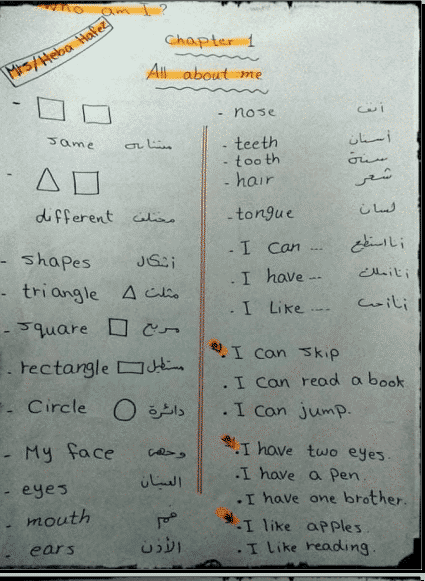 Who am I?
Mrs/Heba Hafez
Chapter 1
All about me
-
same متشابه
-
different مختلف
- shapes أشكال
- triangle مثلث
- square مربع
- rectangle مستطيل
- Circle دائرة
- My face وجهى
- eyes العينان
- mouth فم
- ears الأذن
- nose أنف
- teeth أسنان
- tooth سنة
- hair شعر
- tongue لسان
- I can ... أنا أستطيع
. I have --- أنا أملك
. I Like ---- أنا أحب
. I can skip
. I can read a book
. I can jump.
. I have two eyes.
. I have a pen.
. I have one brother.
. I like apples.
. I Like reading.